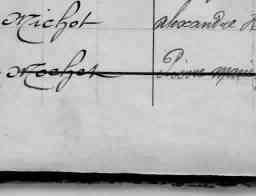 Michot alexandre
Mochet Pierre marie